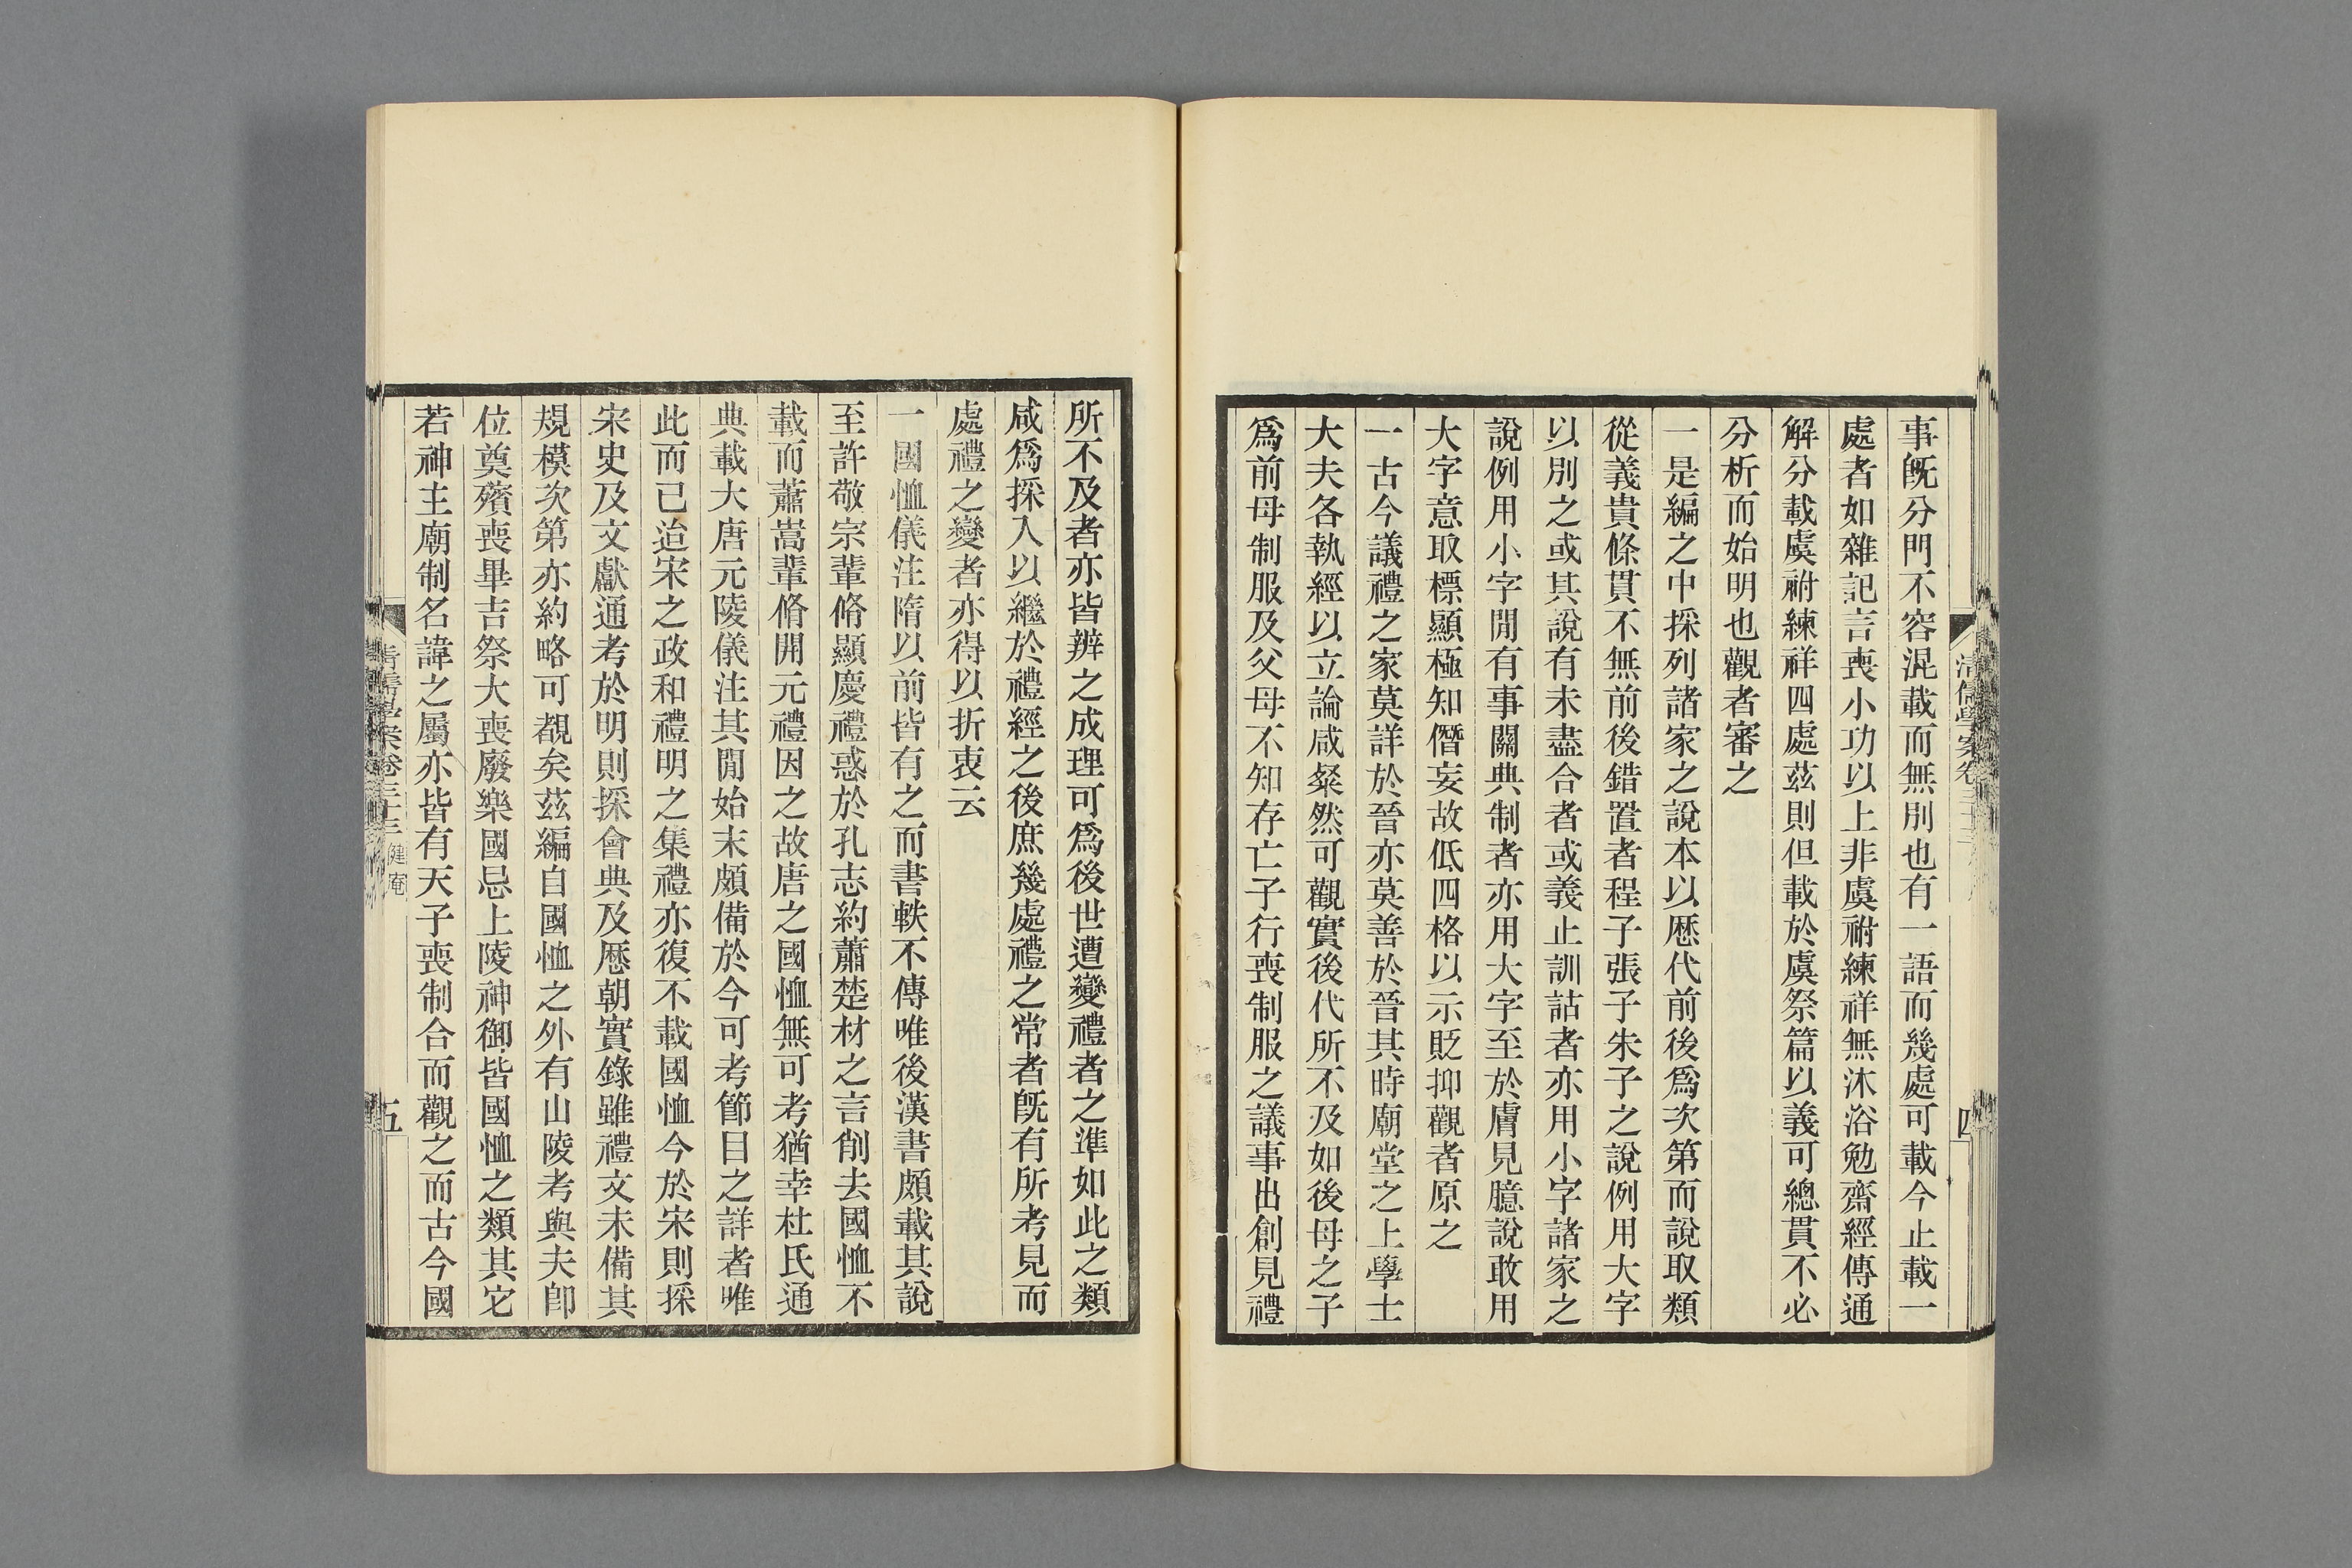 事旣分門不容混載而無別也有一語而幾處可載今止載一
處者如雜記言喪小功以上非虞祔練祥無沐浴勉齋經傳通
解分載虞祔練祥四處茲則但載於虞祭篇以義可總貫不必
分析而始明也觀者審之
一是編之中採列諸家之說本以歷代前後爲次第而說取類
從義貴條貫不無前後錯置者程子張子朱子之說例用大字
以別之或其說有未盡合者或義止訓詁者亦用小字諸家之
說例用小字閒有事關典制者亦用大字至於膚見臆說敢用
大字意取標顯極知僭妄故低四格以示貶抑觀者原之
一古今議禮之家莫詳於晉亦莫善於晉其時廟堂之上學士
大夫各執經以立論咸粲然可觀實後代所不及如後母之子
爲前母制服及父母不知存亡子行喪制服之議事出創見禮
清儒學案卷三十三
四
所不及者亦皆辨之成理可爲後世遭變禮者之準如此之類
咸爲採入以繼於禮經之後庶幾處禮之常者旣有所考見而
處禮之變者亦得以折衷云
一國恤儀注隋以前皆有之而書軼不傳唯後漢書頗載其說
至許敬宗輩脩顯慶禮惑於孔志約蕭楚材之言削去國恤不
載而蕭嵩輩脩開元禮因之故唐之國恤無可考猶幸杜氏通
典載大唐元陵儀注其閒始末頗備於今可考節目之詳者唯
此而已迨宋之政和禮明之集禮亦復不載國恤今於宋則採
宋史及文獻通考於明則採會典及歷朝實錄雖禮文未備其
規模次第亦約略可覩矣茲編自國恤之外有山陵考與夫卽
位奠殯喪畢吉祭大喪廢樂國忌上陵神御皆國恤之類其它
若神主廟制名諱之屬亦皆有天子喪制合而觀之而古今國
清儒學案卷三十三 健庵
五